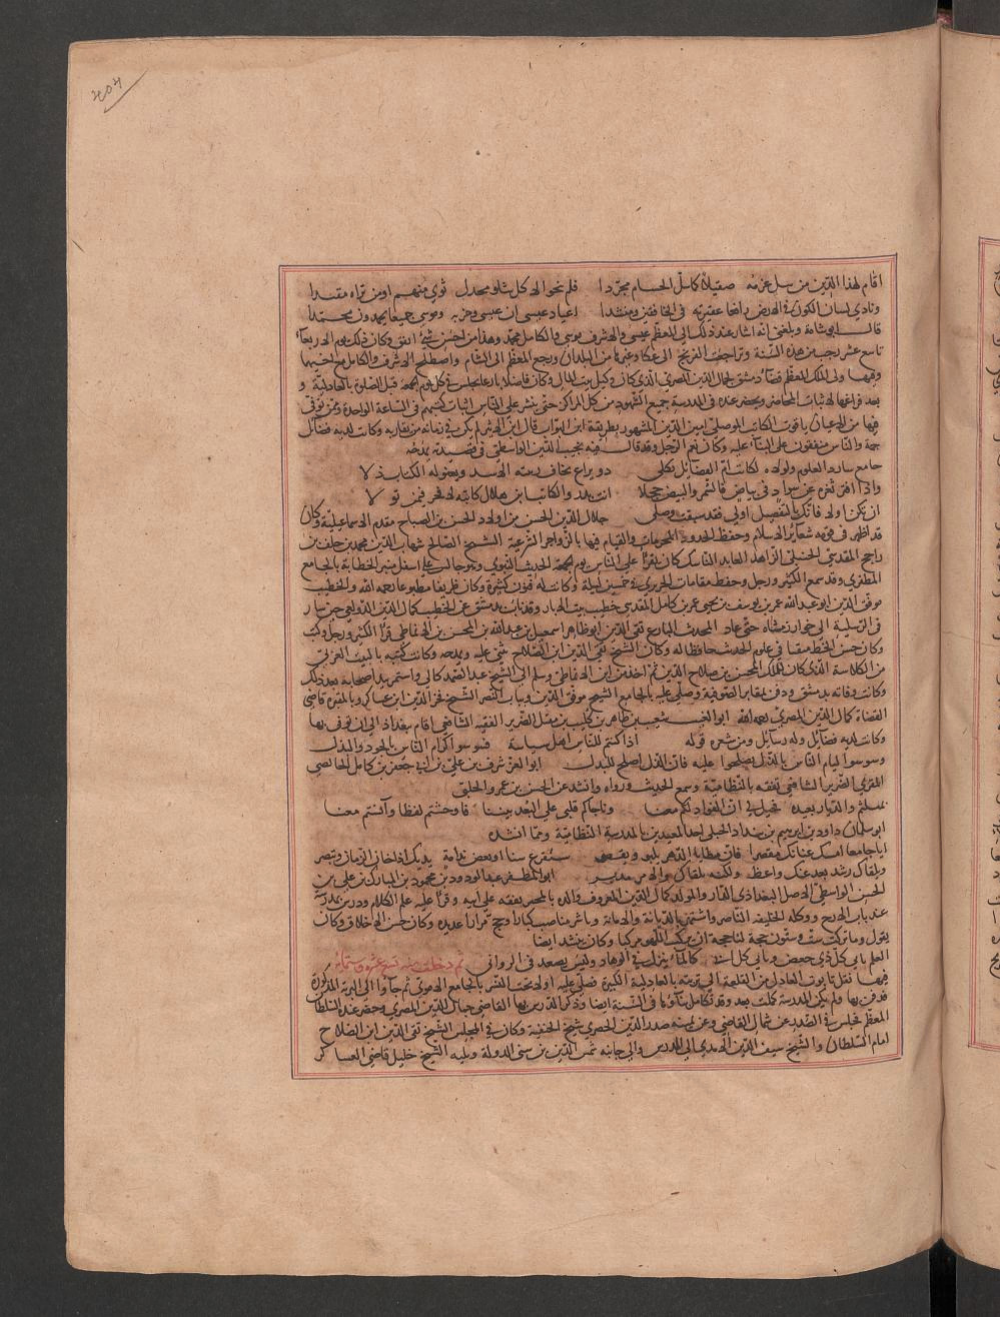 ٤٥٤
اقام لهذا الدين من سل عزمه صقيلا كما سل الحسام مجردا فلم تنجو الا كل شلو مجدل ثوى منهم او من تراه مقيدا
ونادى لسان الكون في الارض رافعا عقيرته في الخافقين ومنشدا اعباد عيسى ان عيسى وحزبه وموسى جميعا يخدمون محمدا
قال ابو شامة وبلغني انه اشار عند ذلك الى المعظم عيسى والاشرف موسى والكامل محمد وهذا من احسن شئ اتفق وكان ذلك يوم الاربعاء
تاسع عشر رجب من هذه السنة وتراجعت الفرنج الى عكا وغيرها من البلدان ورجع المعظم الى الشام واصطلح الاشرف والكامل مع اخيهما
وفيها ولى الملك المعظم قضاء دمشق لجمال الدين المصري الذي كان وكيل بيت المال وكان فاضلا بارعا يجلس في كل يوم جمعة قبل الصلوة بالعادلية و
بعد فراغها لاثبات المحاضر ويحضر عنده في المدرسة جميع الشهود من كل المراكز حتى يتيسر على الناس اثبات كتبهم في الساعة الواحدة وممن توفى
فيها من الاعيان ياقوت الكاتب الموصلي امين الدين المشهور بطريقة ابن البواب قال ابن الاثير لم يكن في زمانه من يقاربه وكانت لديه فضائل
جمة والناس متفقون على الثناء عليه وكان نعم الرجل وقد قال فيه نجيب الدين الواسطي في قصيدة يمدحه
جامع شارد العلوم ولولاه لكانت ام الفضائل ثكلى ذو يراع يخاف ريقته الاسد ويعنو له الكتائب ذلا
واذا افتر ثغره عن سواد في بياض فالسمر والبيض خجلا انت بدر والكاتب ابن هلال كابيه لا فخر فيمن تولى
ان يكن اولا فانك بالتفضيل اولى فقد سبقت وصلى جلال الدين الحسن من اولاد الحسن بن الصباح مقدم الاسماعيلية وكان
قد اظهر في قومه شعائر الاسلام وحفظ الحدود والمحرمات والقيام فيها بالزواجر الشرعية الشيخ الصالح شهاب الدين محمد بن خلف بن
راجح المقدسي الحنبلي الزاهد العابد الناسك كان يقرأ على الناس يوم الجمعة الحديث النبوي وهو جالب على اسفل منبر الخطابة بالجامع
المظفري وقد سمع الكثير ورحل وحفظ مقامات الحريري في خمسين ليلة وكانت له فنون كثيرة وكان ظريفا مطبوعا رحمه الله والخطيب
موفق الدين ابو عبد الله عمر بن يوسف بن يحيى بن عمر بن كامل المقدسي خطيب بيت الابار وقد ناب بدمشق عن الخطيب جمال الدين الدولعي حين سار
في الرسلية الى خوارزمشاه حتى عاد المحدث البارع تقي الدين ابو طاهر اسمعيل بن عبد الله بن المحسن بن الانماطي قرأ الكثير ورحل وكتب
وكان حسن الخط متقنا في علوم الحديث حافظا له وكان الشيخ تقي الدين ابن الصلاح يثني عليه ويمدحه وكانت كتبه بالبيت الغربي
من الكلاسة الذي كان للملك المحسن بن صلاح الدين ثم اخذ من ابن الانماطي وسلم الى الشيخ عبد الصمد الدكالي واستمر بيد اصحابه بعد ذلك
وكانت وفاته بدمشق ودفن بمقابر الصوفية وصلى عليه بالجامع الشيخ موفق الدين وبباب النصر الشيخ فخر الدين ابن عساكر وبالمقبرة قاضي
القضاة جمال الدين المصري رحمه الله ابو الغيث شعيب بن طاهر بن كليب بن مقبل الضرير الفقيه الشافعي اقام ببغداد الى ان توفى بها
وكانت لديه فضائل وله رسائل ومن شعره قوله اذا كنتم للناس اهل سياسة فسوسوا كرام الناس بالجود والبذل
وسوسوا لئام الناس بالذل يصلحوا عليه فان الذل اصلح للنذل ابو العز شرف بن علي بن ابي جعفر بن كامل الخالصي
المقرئ الضرير الشافعي تفقه بالنظامية وسمع الحديث ورواه وانشد عن الحسن بن عمرو الحلبي
تمثلتم لي والديار بعيدة فخيل لي ان الفؤاد لكم مغنا وناجاكم قلبي على البعد بيننا فاوحشتم لفظا وآنستم معنا
ابو سليمان داود بن ابراهيم بن مندار الجيلي احد المعيدين بالمدرسة النظامية ومما انشده
ايا جامعا امسك عنانك مقصرا فان مطايا الدهر تكبو وتقصر ستقرع سنا او تعض ندامة يديك اذا خان الزمان وتبصر
ويلقاك رشد بعد غيك واعظ ولكنه يلقاك والامر مدبر ابو المظفر عبد الودود بن محمود بن المبارك بن علي بن
الحسن الواسطي الاصل البغدادي الدار والمولد كمال الدين المعروف والده بالمجير تفقه على ابيه وقرأ عليه علم الكلام ودرس بمدرسته
عند باب الازج ووكله الخليفة الناصر واشتهر بالديانة والامانة وباشر مناصب كبارا وحج مرارا عديدة وكان حسن الاخلاق وكان
يقول وما تركت ستون حجة لنا حجة ان نركب اللهو مركبا وكان ينشد ايضا
العلم يأتي كل ذي خفض ويأبى كل آبى كالماء ينزل في الوهاد وليس يصعد في الروابي ثم دخلت سنة تسع عشرة وستمائة
فيها نقل تابوت العادل من القلعة الى تربته بالعادلية الكبيرة فصلي عليه اولا تحت النسر بالجامع الاموي ثم جاؤا الى التربة المذكورة
فدفن بها ولم تكن المدرسة كملت بعد وقد تكامل بناؤها في السنة ايضا وذكر الدرس بها القاضي جمال الدين المصري وحضر عنده السلطان
المعظم فجلس في الصدر عن شمال القاضي وعن يمينه صدر الدين الحصري شيخ الحنفية وكان في المجلس الشيخ تقي الدين ابن الصلاح
امام السلطان والشيخ سيف الدين الآمدي الى المدرس والى جانبه شمس الدين بن سني الدولة ويليه الشيخ خليل قاضي العساكر